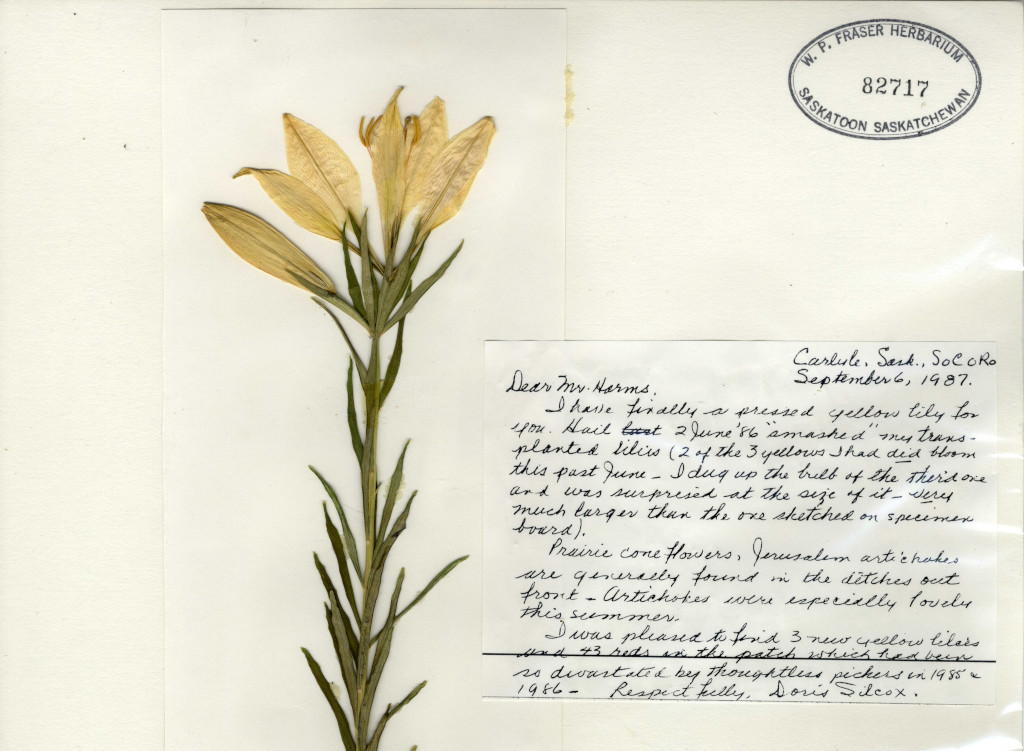 W. P. FRASER HERBARIUM
82717
SASKATOON SASKATCHEWAN
Carlyle, Sask., SoC oRo
September 6, 1987.
Dear Mr. Harms,
I have finally a pressed yellow lily for
you. Hail last 2 June '86 "smashed" my trans-
planted lilies (2 of the 3 yellows I had did bloom
this past June - I dug up the bulb of the third one
and was surprised at the size of it - very
much larger than the one sketched on specimen
board).
Prairie coneflowers, Jerusalem artichokes
are generally found in the ditches out
front - Artichokes were especially lovely
this summer.
I was pleased to find 3 new yellow lilies
and 43 reds in the patch which had been
so divastated by thoughtless pickers in 1985 &
1986 - Respectfully, Doris Silcox.